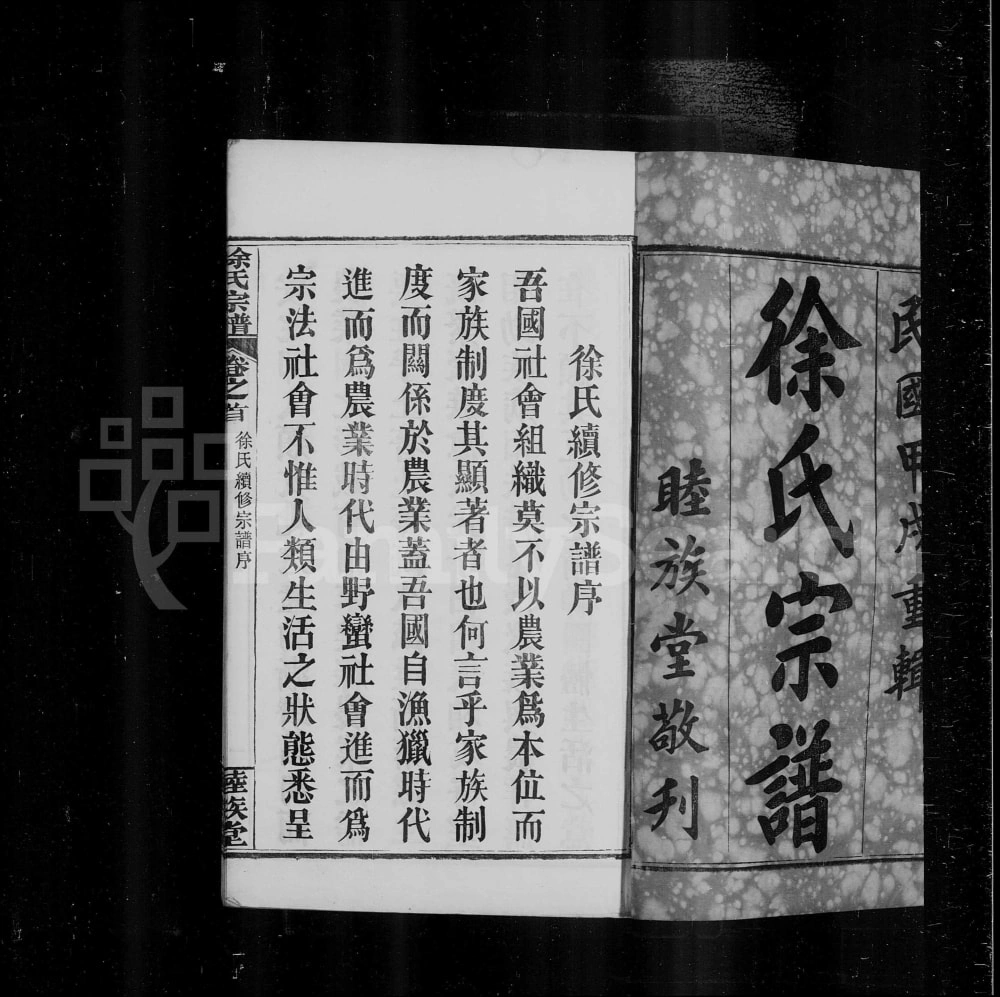 民國甲戌重輯
徐氏宗譜
睦族堂敬刋
徐氏續修宗譜序
吾國社會組織莫不以農業爲本位而
家族制度其顯著者也何言乎家族制
度而關係於農業蓋吾國自漁獵時代
進而爲農業時代由野蠻社會進而爲
宗法社會不惟人類生活之狀態悉呈
徐氏宗譜
卷之首
徐氏續修宗譜序
睦族堂
FamilyS